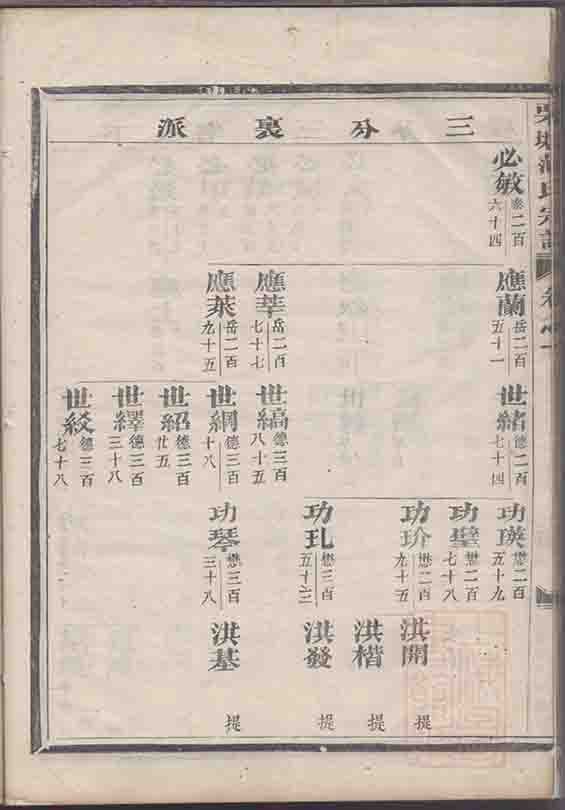 三分裏派
必敏 泰二百六十四
應蘭 岳二百五十一
應莘 岳二百七十七
應萊 岳二百九十五
世緒 德二百七十四
世縞 德三百八十五
世綱 德三百十八
世紹 德三百廿五
世繹 德三百三十八
世綬 德三百七十八
功瑛 懋二百五十九
功璧 懋二百七十八
功玠 懋二百九十五
功玌 懋三百五十三
功琴 懋三百三十八
洪開 提
洪楷 提
洪發 提
洪基 提
氏宗譜